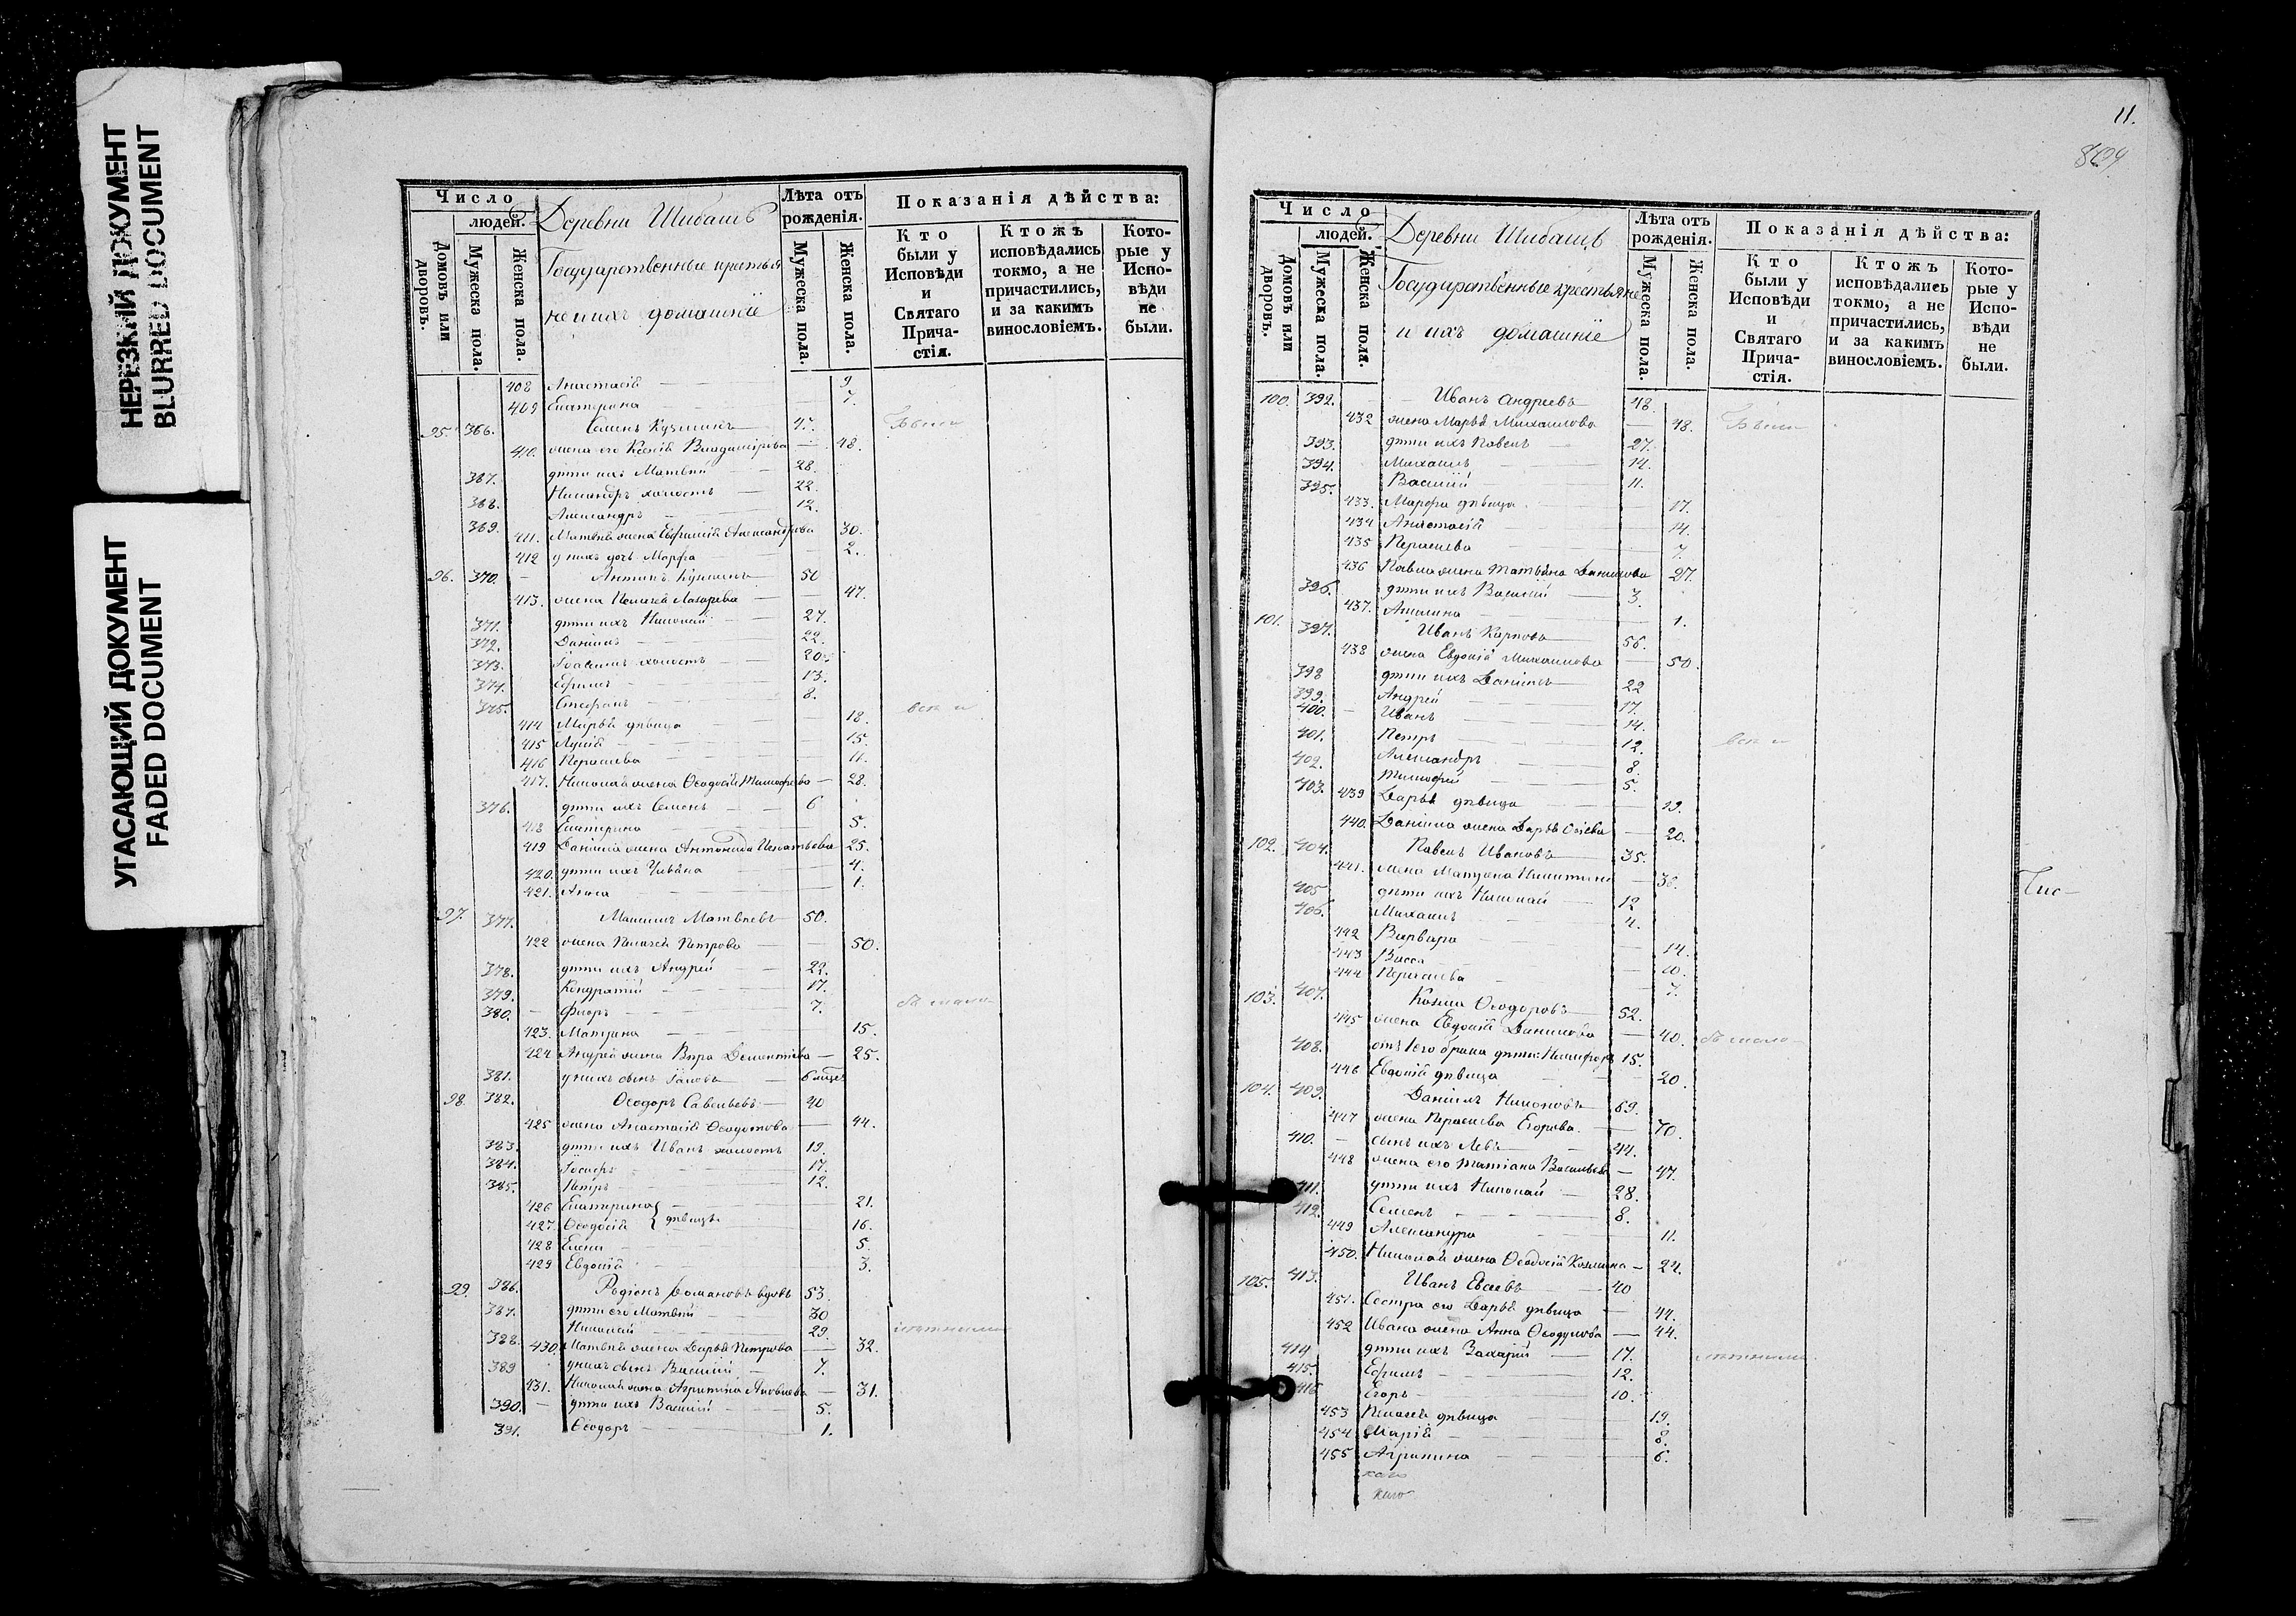 НЕРЕЗКИЙ ДОКУМЕНТ
BLURRED DOCUMENT
УГАСАЮЩИЙ ДОКУМЕНТ
FADED DOCUMENT
Число
людей.
Домовъ или дворовъ.
Мужеска пола.
Женска пола.
Деревни Шибашъ
Государственные крестья
не и ихъ домашніе
Лѣта отъ рожденія.
Мужеска пола.
Женска пола.
Показанія дѣйства:
Кто были у Исповѣди и Святаго Прича-стія.
Ктожъ исповѣдались токмо, а не причастились, и за какимъ винословіемъ.
Кото-рые у Испо-вѣди не были.
408 Анастасія 9
409 Екатерина 7.
95. 366. Семенъ Кузминъ 47. Были
410. жена его Ксенія Владимірова 48.
367. дѣти ихъ Матвѣй 28.
368. Никандръ холостъ 22.
369. Александръ 12.
411. Матвѣя жена Евфимія Александрова 30.
412 у нихъ дочь Марфа 2.
96. 370. Антипъ Кузминъ 50
413. жена Пелагея Лазарева 47.
371. дѣти ихъ Николай 27.
372. Даніилъ 22.
373. Іоакимъ холостъ 20.
374. Ефимъ 13.
375. Стефанъ 8.
414 Марья дѣвица 18. всѣ и
415 Лукія 15.
416 Параскева 11.
417. Николая жена Ѳеодосія Тимофеева 28.
376. дѣти ихъ Семенъ 6
418 Екатерина 5.
419 Даніила жена Антонида Игнатьева 25.
420. дѣти ихъ 4.
421. Анна 1.
97. 377. Максимъ Матвѣевъ 50.
422 жена Пелагея Петрова 50.
378. дѣти ихъ Андрей 22.
379. Кондратій 17.
380. Флоръ 7.
423. Матрина 15.
424 Андрея жена Вѣра Дементіева 25.
381. у нихъ сынъ Іаковъ 6 мѣсц.
98. 382. Ѳеодоръ Савельевъ 40
425 жена Анастасія Ѳеодотова 44.
383. дѣти ихъ Иванъ холостъ 19.
384. Іосифъ 17.
385. Петръ 12.
426 Екатерина 21.
427. Ѳеодосія дѣвицы 16.
428 Елена 5.
429 Евдокія 3.
99. 386. Родіонъ Романовъ вдовъ 53.
387. дѣти его Матвѣй 30
388. Николай 29.
430. Матвѣя жена Дарья Петрова 32.
389 у нихъ сынъ Василій 7.
431. Николая жена Агрипина Яковлева 31.
390. дѣти ихъ Василій 5.
391. Ѳеодоръ 1.
11.
809
Число
людей.
Домовъ или дворовъ.
Мужеска пола.
Женска пола.
Деревни Шибашъ
Государственные крестьяне
и ихъ домашніе
Лѣта отъ рожденія.
Мужеска пола.
Женска пола.
Показанія дѣйства:
Кто были у Исповѣди и Святаго Прича-стія.
Ктожъ исповѣдались токмо, а не причастились, и за какимъ винословіемъ.
Кото-рые у Испо-вѣди не были.
100. 392. Иванъ Андреевъ 48.
432 жена Марья Михаилова 48. Были
393. дѣти ихъ Павелъ 27.
394. Михаилъ 14.
395. Василій 11.
433. Марфа дѣвица 17.
434 Анастасія 14.
435 Параскева 7.
436 Павла жена Татьяна Данилова 27.
396. дѣти ихъ Василій 3.
437. Акилина 1.
101. 397. Иванъ Карповъ 56.
438 жена Евдокія Михаилова 50.
398 дѣти ихъ Даніилъ 22
399. Андрей 17.
400. Иванъ 14.
401. Петръ 12. всѣ и
402. Александръ 8.
403. Тимофей 5.
439 Дарья дѣвица 19.
440. Даніила жена Дарья 20.
102. 404. Павелъ Ивановъ 35.
441. жена Матрона Никитина 38.
405 дѣти ихъ Николай 12
406. Михаилъ 4.
442 Варвара 14.
443 Васса 10.
444 Параскева 7.
103. 407. Козма Ѳеодоровъ 52.
445 жена Евдокія Данилова 40.
408. отъ 1го брака дѣти: Никифоръ 15.
446 Евдокія дѣвица 20.
104. 409. Даніилъ Никоновъ 69.
447 жена Параскева Егорова 70.
410. сынъ ихъ Левъ 44.
448 жена его Татіана Васильева 47.
411. дѣти ихъ Николай 28.
412. Семенъ 8.
449 Александра 11.
450. Николая жена Ѳеодосія Козмина 24.
105. 413. Иванъ Евсеевъ 40
451. Сестра его Дарья дѣвица 44.
452 Ивана жена Анна Ѳеодулова 44.
414 дѣти ихъ Захарій 17.
415. Ефимъ 12.
416 Егоръ 10.
453 Пелагея дѣвица 19.
454 Марія 8.
455 Агрипина 6.